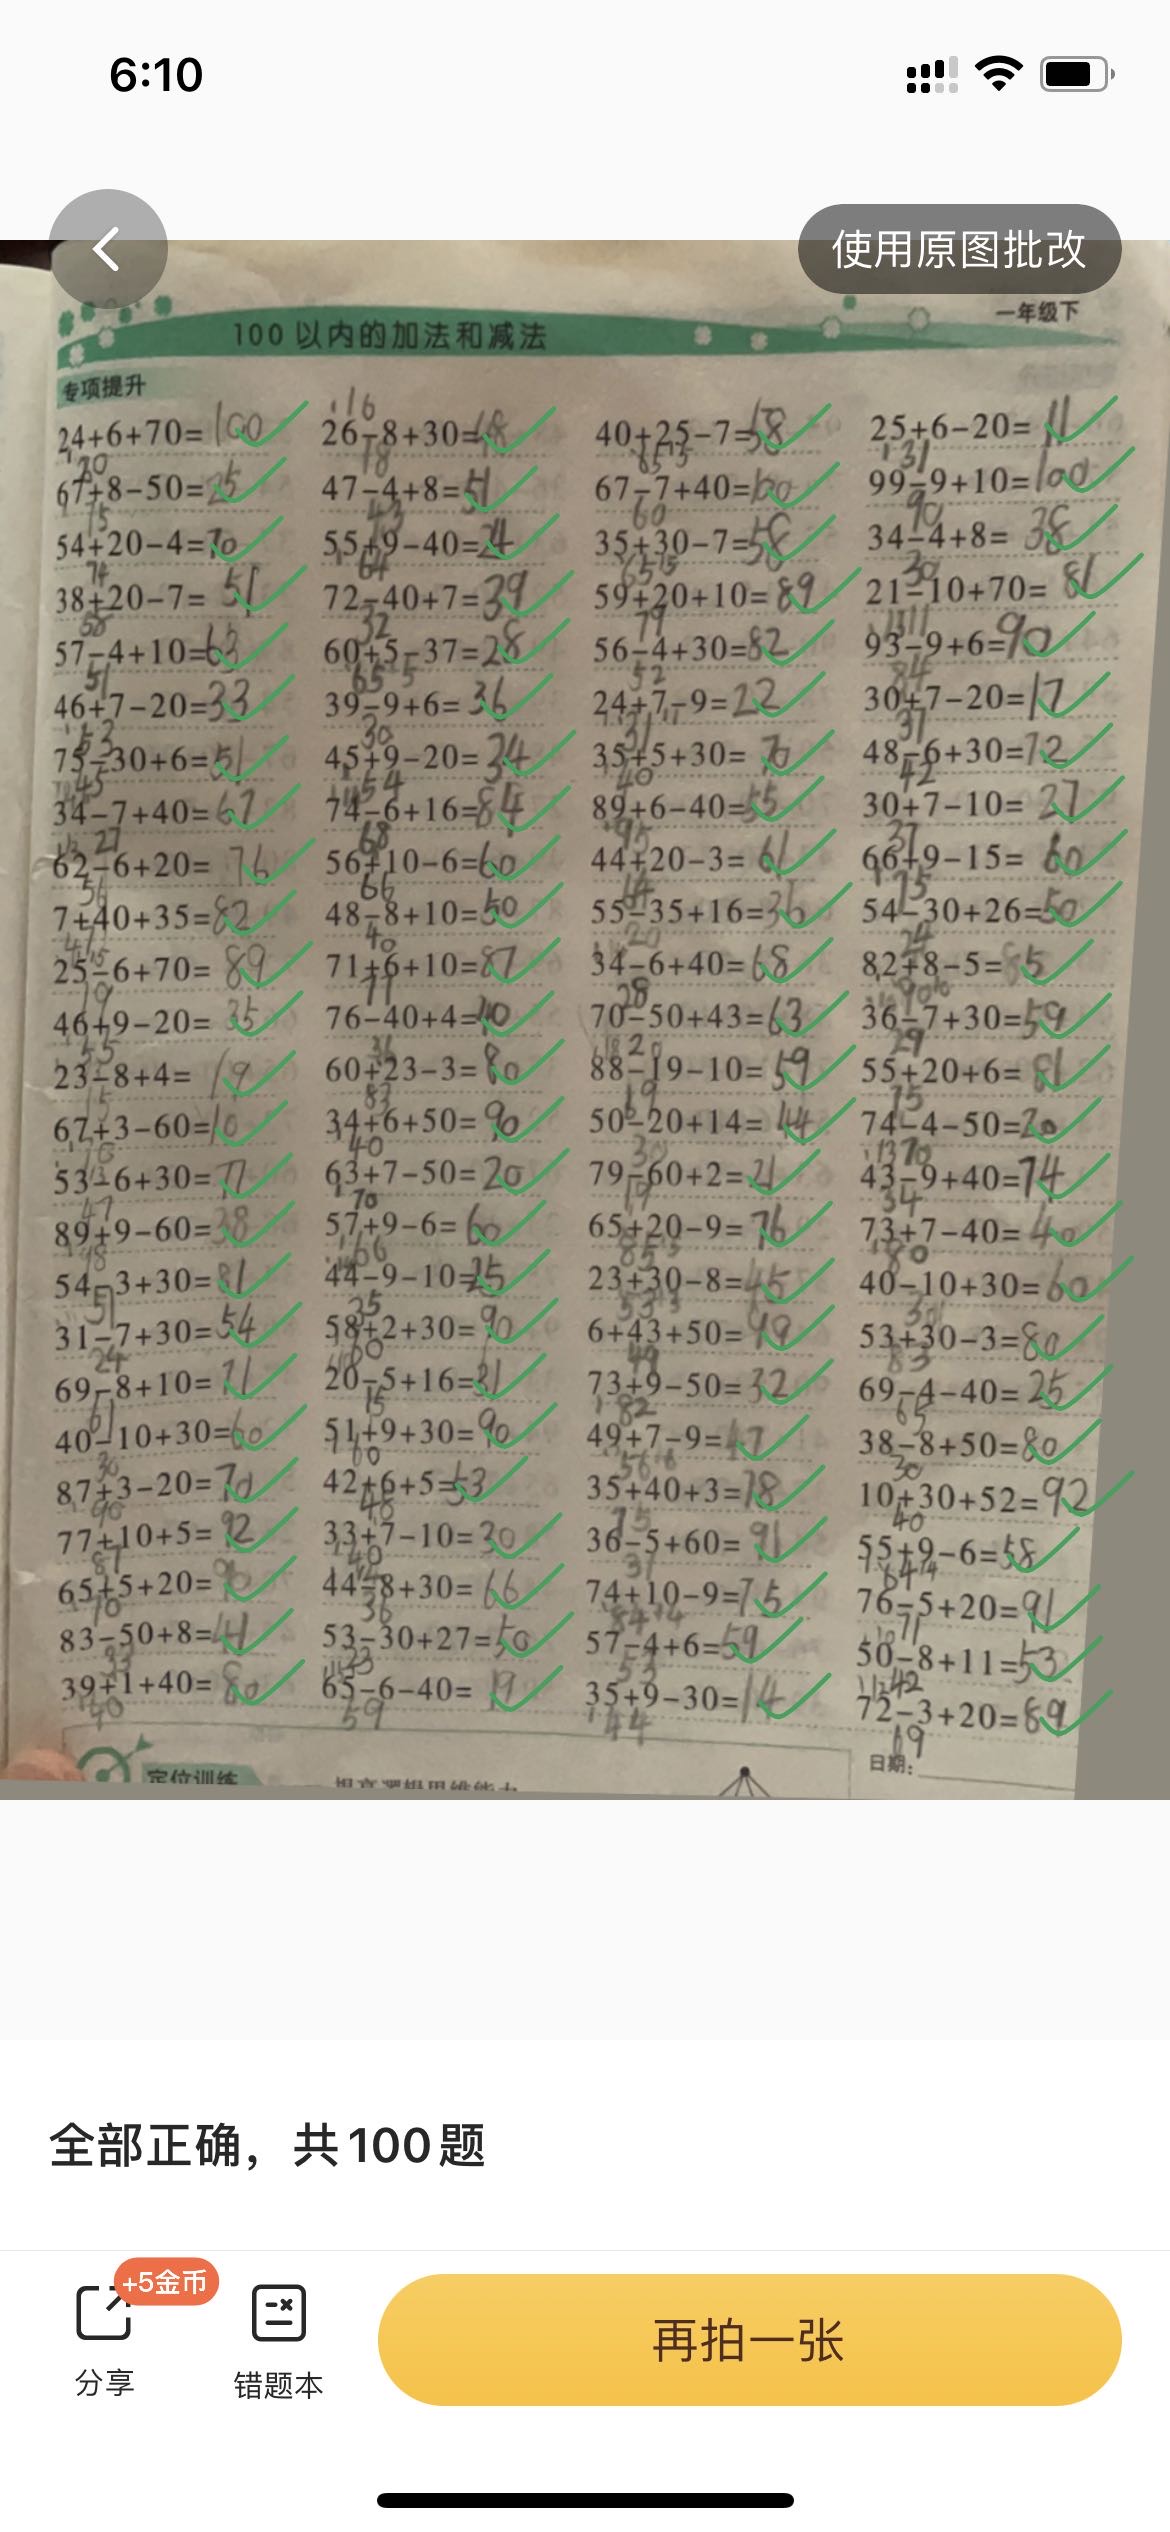 6:10
使用原图批改
一年级下
100以内的加法和减法
专项提升
24+6+70=100 26-8+30=48 40+25-7=58 25+6-20=11
67+8-50=25 47-4+8=51 67-7+40=100 99-9+10=100
54+20-4=70 55+9-40=24 35+30-7=58 34-4+8=38
38+20-7=51 72-40+7=39 59+20+10=89 21-10+70=81
57-4+10=63 60+5-37=28 56-4+30=82 93-9+6=90
46+7-20=33 39-9+6=36 24+7-9=22 30+7-20=17
75-30+6=51 45+9-20=34 35+5+30=70 48-6+30=72
34-7+40=67 74-6+16=84 89+6-40=55 30+7-10=27
62-6+20=76 56+10-6=60 44+20-3=61 66+9-15=60
7+40+35=82 48-8+10=50 55-35+16=36 54-30+26=50
25-6+70=89 71+6+10=87 34-6+40=68 82+8-5=85
46+9-20=35 76-40+4=40 70-50+43=63 36-7+30=59
23-8+4=19 60+23-3=80 88-19-10=59 55+20+6=81
67+3-60=10 34+6+50=90 50-20+14=44 74-4-50=20
53-6+30=77 63+7-50=20 79-60+2=21 43-9+40=74
89+9-60=38 57+9-6=60 65+20-9=76 73+7-40=40
54-3+30=81 44-9-10=25 23+30-8=45 40-10+30=60
31-7+30=54 58+2+30=90 6+43+50=99 53+30-3=80
69-8+10=71 20-5+16=31 73+9-50=32 69-4-40=25
40-10+30=60 51+9+30=90 49+7-9=47 38-8+50=80
87+3-20=70 42+6+5=53 35+40+3=78 10+30+52=92
77+10+5=92 33+7-10=30 36-5+60=91 55+9-6=58
65+5+20=90 44-8+30=66 74+10-9=75 76-5+20=91
83-50+8=41 53-30+27=50 57-4+6=59 50-8+11=53
39+1+40=80 65-6-40=19 35+9-30=14 72-3+20=89
日期:
定位训练
全部正确，共100题
+5金币
分享
错题本
再拍一张